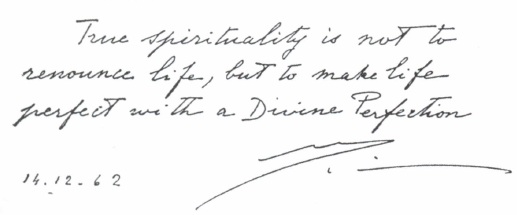 True spirituality is not to
renounce life, but to make life
perfect with a Divine Perfection
14.12-62